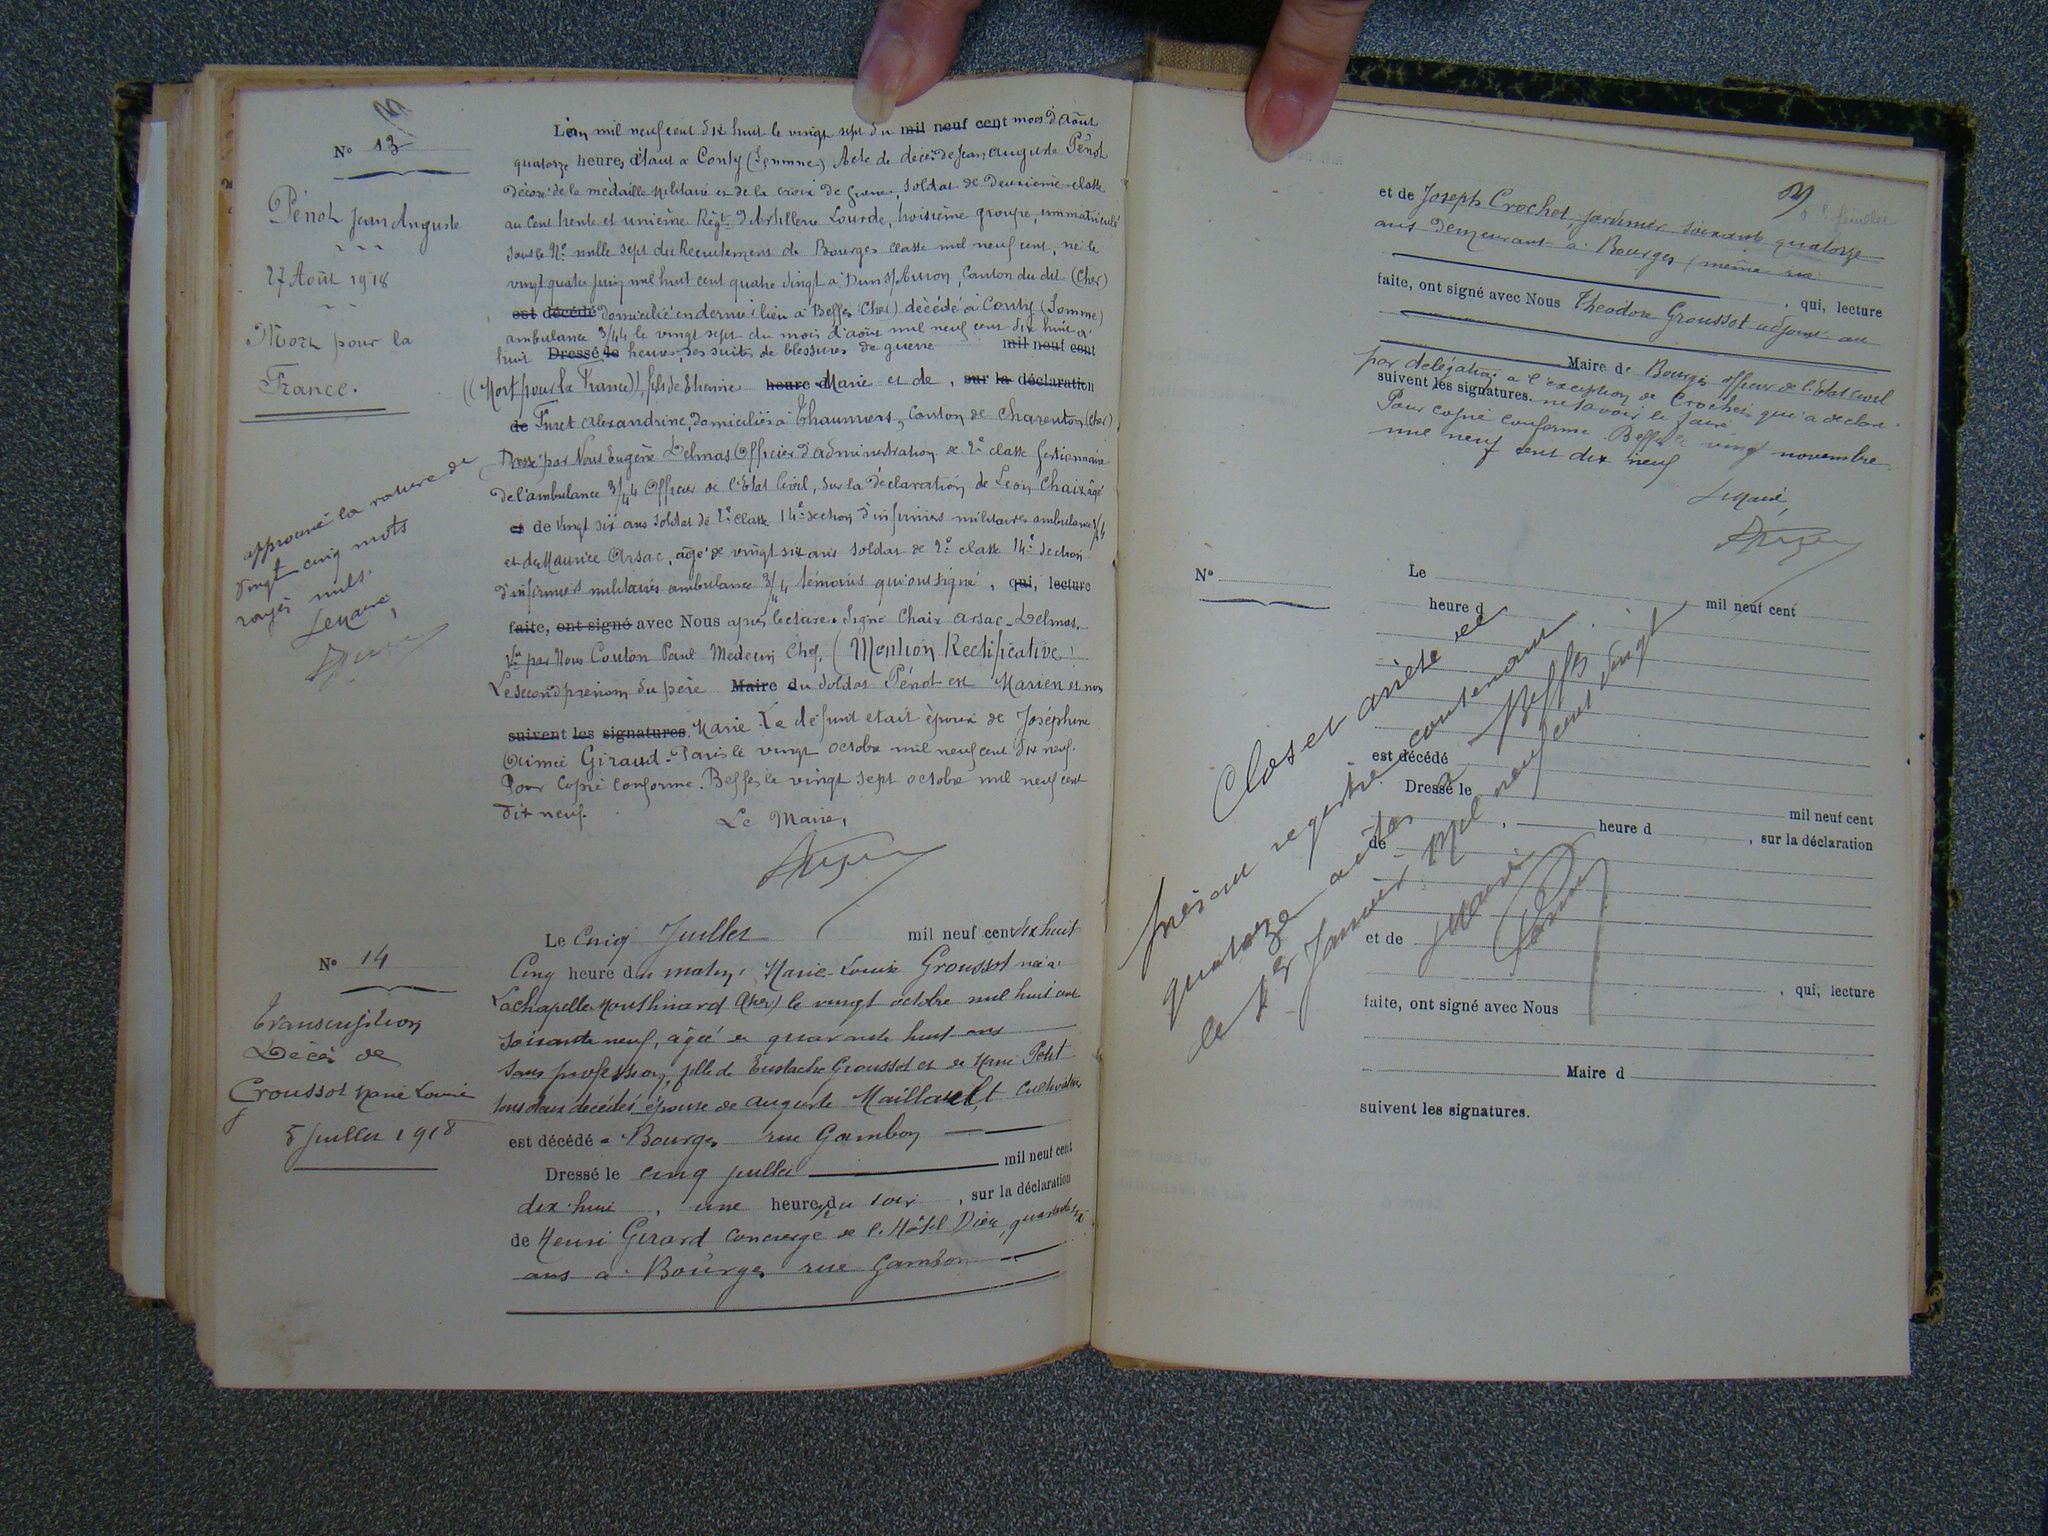 N° 13
Pénot Jean Auguste
27 Août 1918
Mort pour la
France.
approuvé la rature de
vingt cinq mots
rayés nuls.
Le Maire,
L'an mil neuf cent dix huit le vingt sept du mil neuf cent mois d'Août
quatorze heures étant à Conty (Somme) Acte de décès de Jean Auguste Pénot
décoré de la médaille Militaire et de la croix de Guerre, Soldat de deuxième classe
au Cent trente et unième Régt d'Artillerie Lourde, troisième groupe, immatriculé
sous le N° mille sept du Recrutement de Bourges classe mil neuf cent, né le
vingt quatre juin mil huit cent quatre vingt à Dun s/ Auron, Canton du dit (Cher)
est décédé domicilié en dernier lieu à Beffes (Cher) décédé à Conty (Somme)
ambulance 3/44 le vingt sept du mois d'août mil neuf cent dix huit à
huit Dressé le heures, des suites de blessures de guerre mil neuf cent
((Mort pour la France)), fils de Etienne heure d Marie et de , sur la déclaration
de Furet Alexandrine, domiciliés à Thaumiers, Canton de Charenton (Cher)
Dressé par Nous Eugène Delmas Officier d'administration de 2e classe gestionnaire
de l'ambulance 3/44 Officier de l'Etat Civil, sur la déclaration de Léon Chaix âgé
et de vingt six ans soldat de 2e classe 14e section d'infirmiers militaires ambulance 3/44
et de Maurice Arsac, âgé de vingt six ans soldat de 2e classe 14e section
d'infirmiers militaires ambulance 3/44 témoins qui ont signé , qui, lecture
faite, ont signé avec Nous après lecture. Signé Chaix Arsac - Delmas.
Vu par Nous Couton Paul Médecin Chef. (Mention Rectificative)
Le second prénom du père Maire d du soldat Pénot est Marien et non
suivent les signatures. Marie Le défunt était époux de Joséphine
Aimée Giraud - Paris le vingt octobre mil neuf cent dix neuf.
Pour copie conforme. Beffes le vingt sept octobre mil neuf cent
dix neuf.
Le Maire,
N° 14
Transcription
Décès de
Groussot Marie Louise
5 Juillet 1918
Le Cinq Juillet mil neuf cent dix huit
Cinq heure du matin, Marie-Louise Groussot née à
Lachapelle Monthinard (Cher) le vingt octobre mil huit cent
soixante neuf, âgée de quarante huit ans
sans profession, fille de Eustache Groussot et de Marie Petit
tous deux décédés épouse de Auguste Maillault, Cultivateur
est décédé à Bourges rue Gambon
Dressé le cinq juillet mil neuf cent
dix-huit , une heure du soir , sur la déclaration
de Henri Girard concierge de l'Hôtel Dieu, quarante
ans à Bourges rue Gambon
et de Joseph Crochet, jardinier soixante quatorze
ans demeurant à Bourges même rue
, qui, lecture
faite, ont signé avec Nous Théodore Groussot adjoint au
Maire de Bourges officier de l'état civil
par délégation à l'exception de Crochet qui a déclaré
suivent les signatures. ne savoir le faire.
Pour copie conforme. Beffes le vingt novembre
mil neuf cent dix neuf
Le Maire,
N° Le
mil neuf cent
heure d
est décédé
Dressé le
mil neuf cent
, heure d , sur la déclaration
de
et de
, qui, lecture
faite, ont signé avec Nous
Maire d
suivent les signatures.
Clos et arrêté le
présent registre contenant
quatorze actes à Beffes
le 1er Janvier mil neuf cent vingt
Le Maire